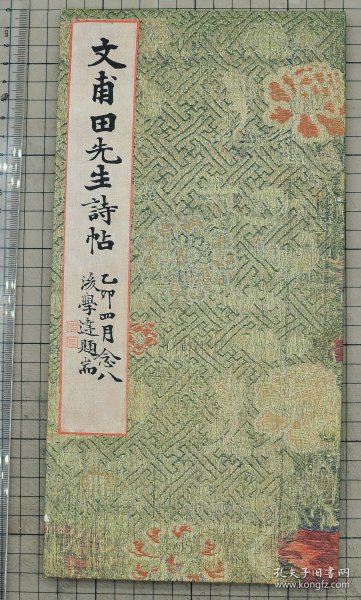 文甫田先生詩帖
乙卯四月念八
後學達題耑
孔夫子旧书网
www.kongfz.com